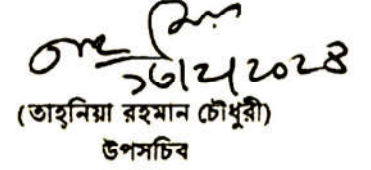 ১৩/২/২০২৪
(তাহ্‌নিয়া রহমান চৌধুরী)
উপসচিব